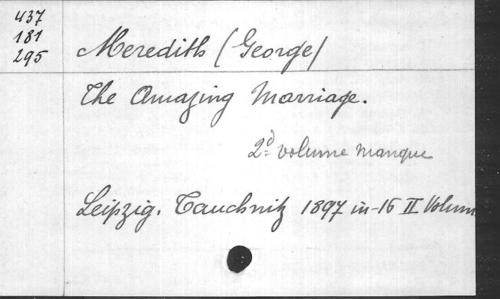 437
181
295
Meredith (George)
The Amazing Marriage.
2d volume manque
Leipzig. Tauchnitz 1897 in-16 II Volum